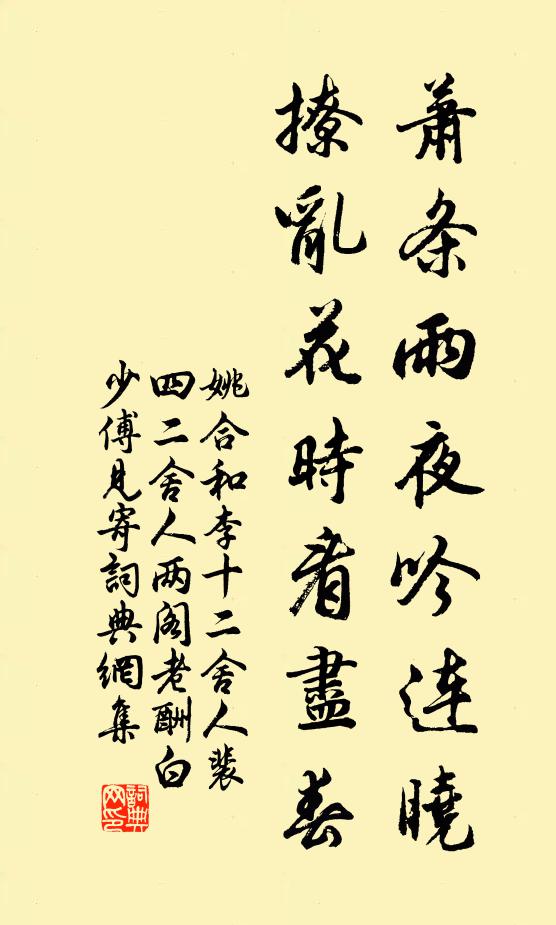 蕭条雨夜吟连曉
撩亂花時看盡春
姚合和李十二舍人裴
四二舍人两阁老酬白
少傅見寄詞典網集
詞典网印